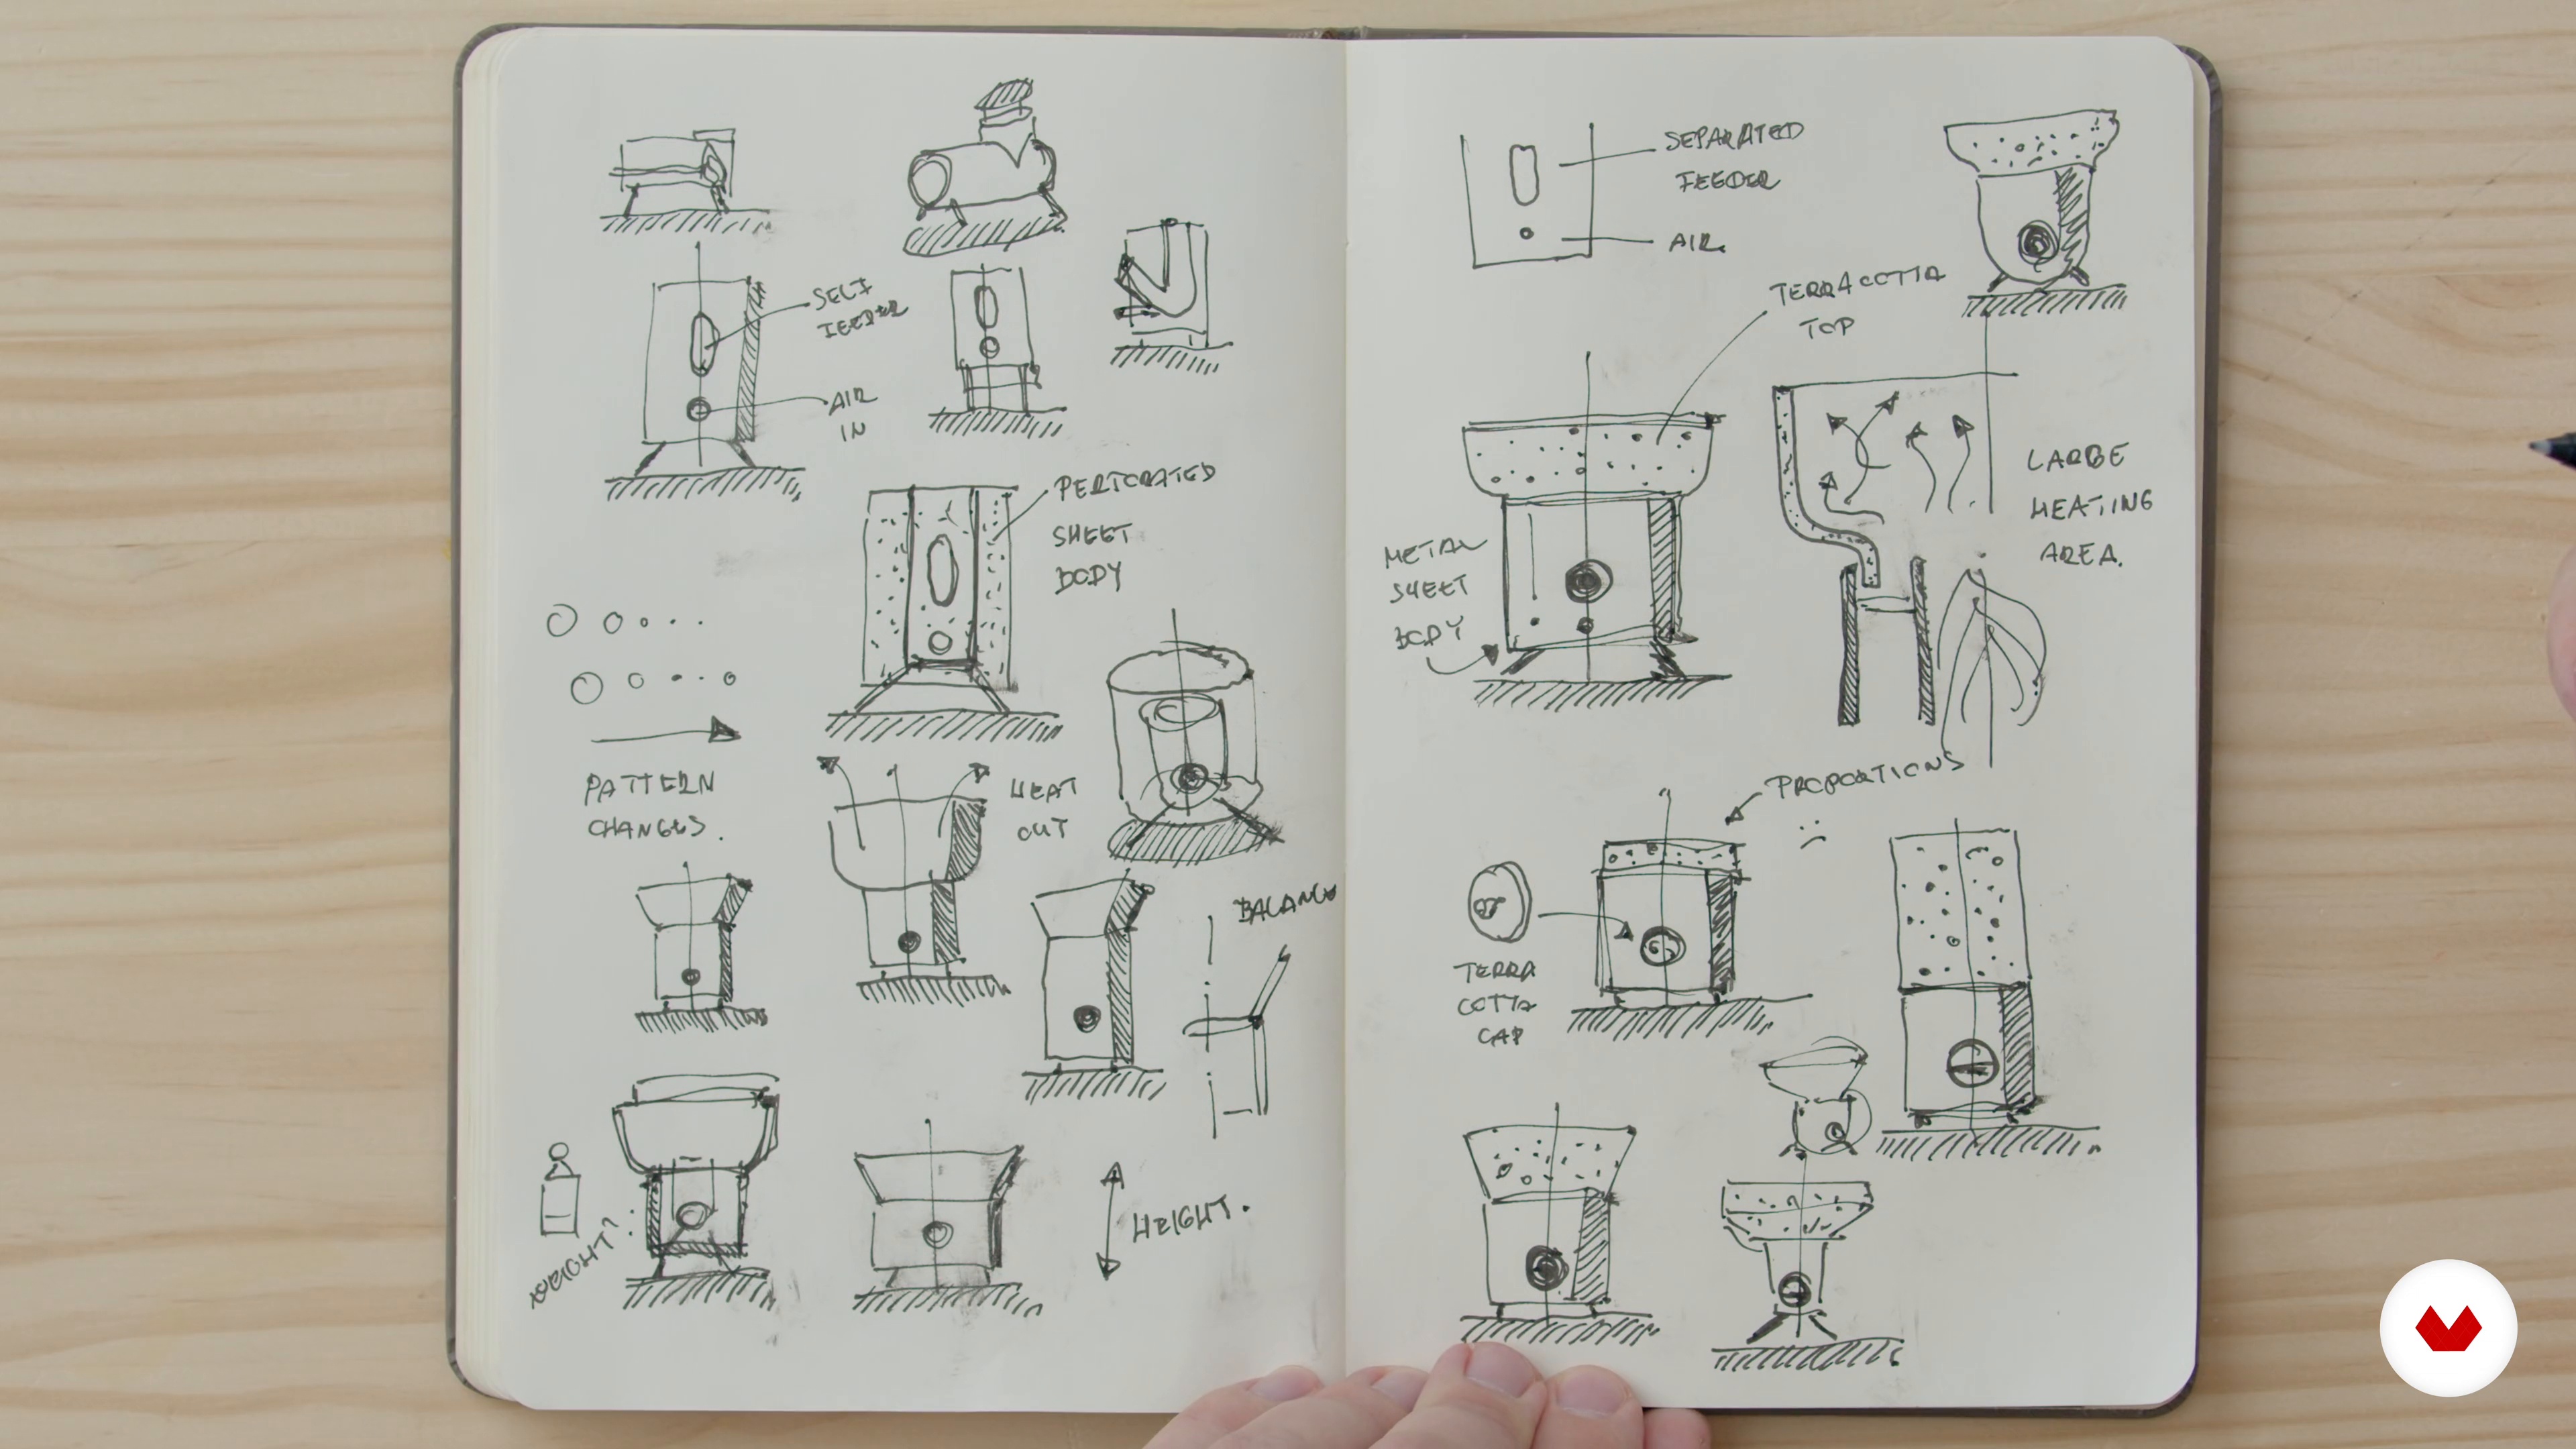 SELF
FEEDER
AIR
IN
PERFORATED
SHEET
BODY
PATTERN
CHANGES.
HEAT
OUT
BALANCE
WEIGHT?
HEIGHT.
SEPARATED
FEEDER
AIR.
TERRACOTTA
TOP
METAL
SHEET
BODY
LARGE
HEATING
AREA.
PROPORTIONS
:(
TERRA
COTTA
CAP